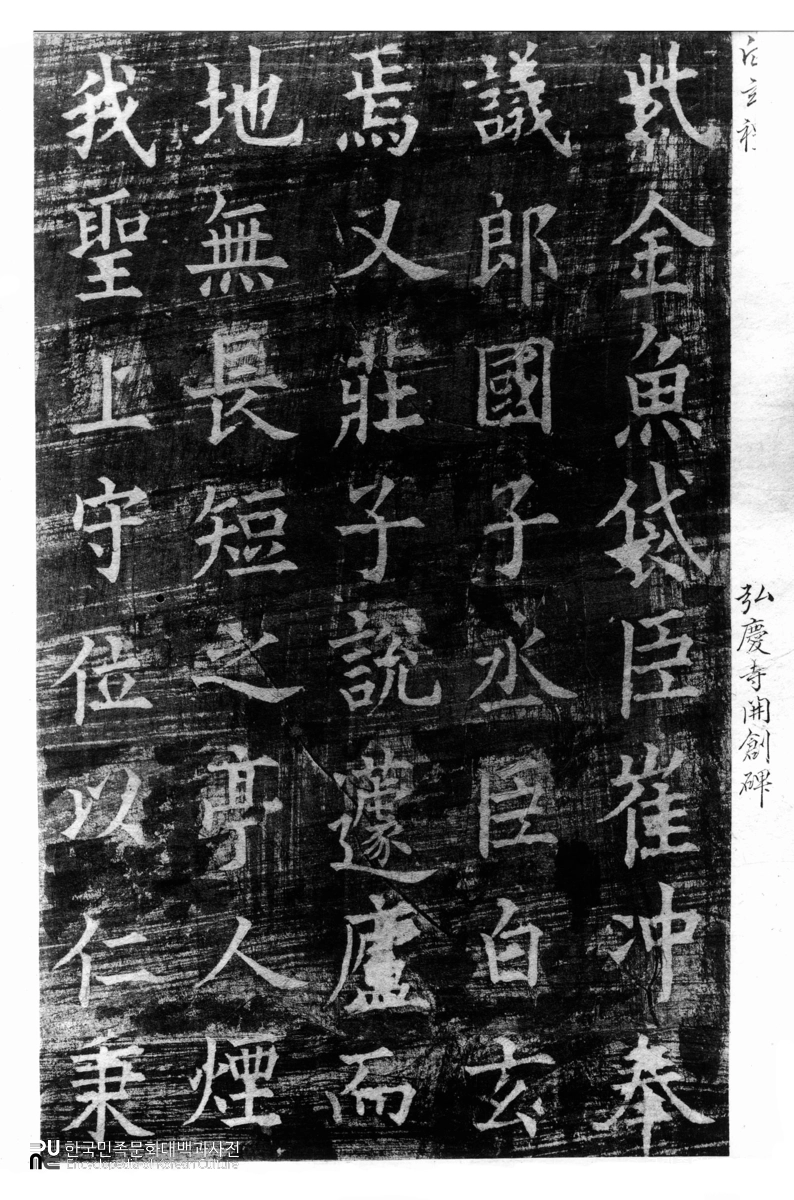 弘慶寺開創碑
紫金魚袋臣崔冲奉
議郎國子丞臣白玄
焉又莊子說蘧廬而
地無長短之亭人煙
我聖上守位以仁秉
한국민족문화대백과사전
Encyclopedia of Korean Culture